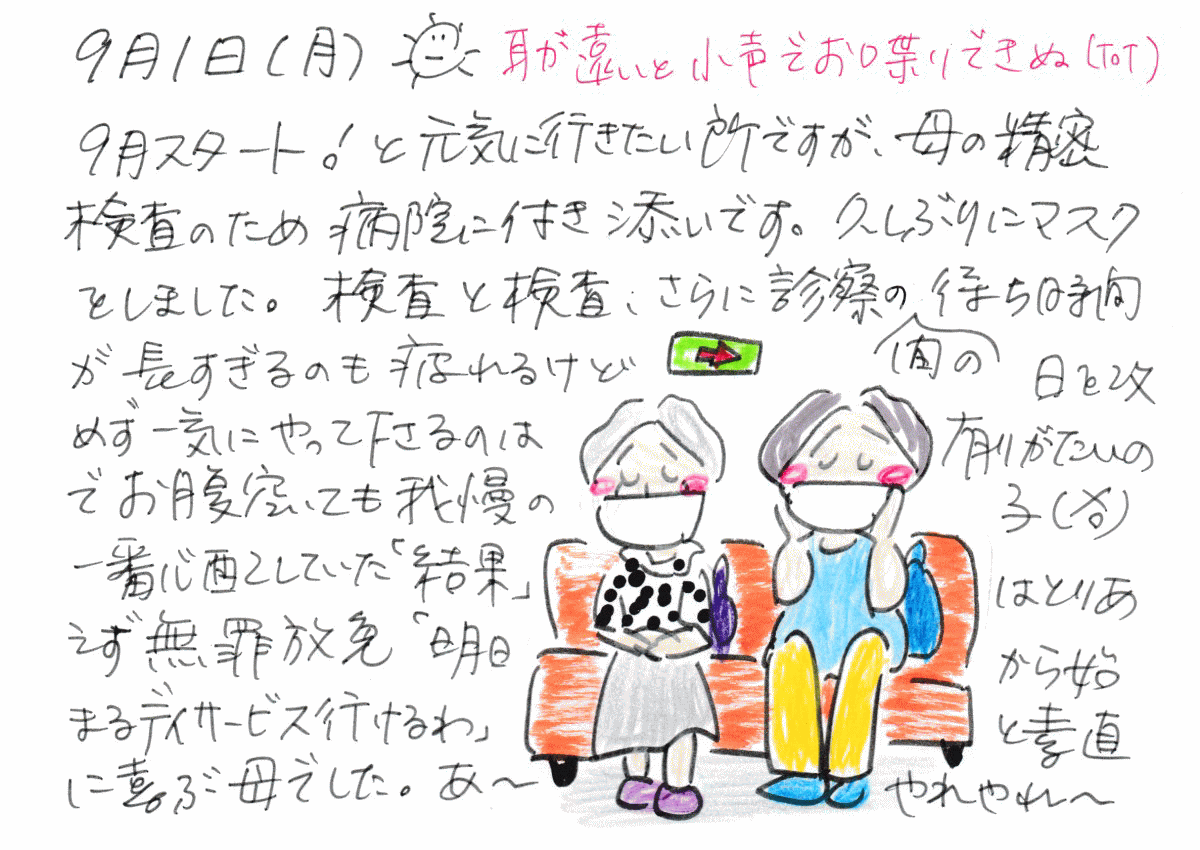 9月1日(月) 耳が遠いと小声でお喋りできぬ(ToT)
9月スタート!と元気に行きたい所ですが、母の精密
検査のため病院に付き添いです。久しぶりにマスク
をしました。検査と検査、さらに診察の間の待ち時間
が長すぎるのも疲れるけど 日を改
めず一気にやって下さるのは 有りがたいの
でお腹空いても我慢の 子(笑)
一番心配していた「結果」 はとりあ
えず無罪放免「明日 から始
まるデイサービス行けるわ」 と素直
に喜ぶ母でした。あ〜 やれやれ〜